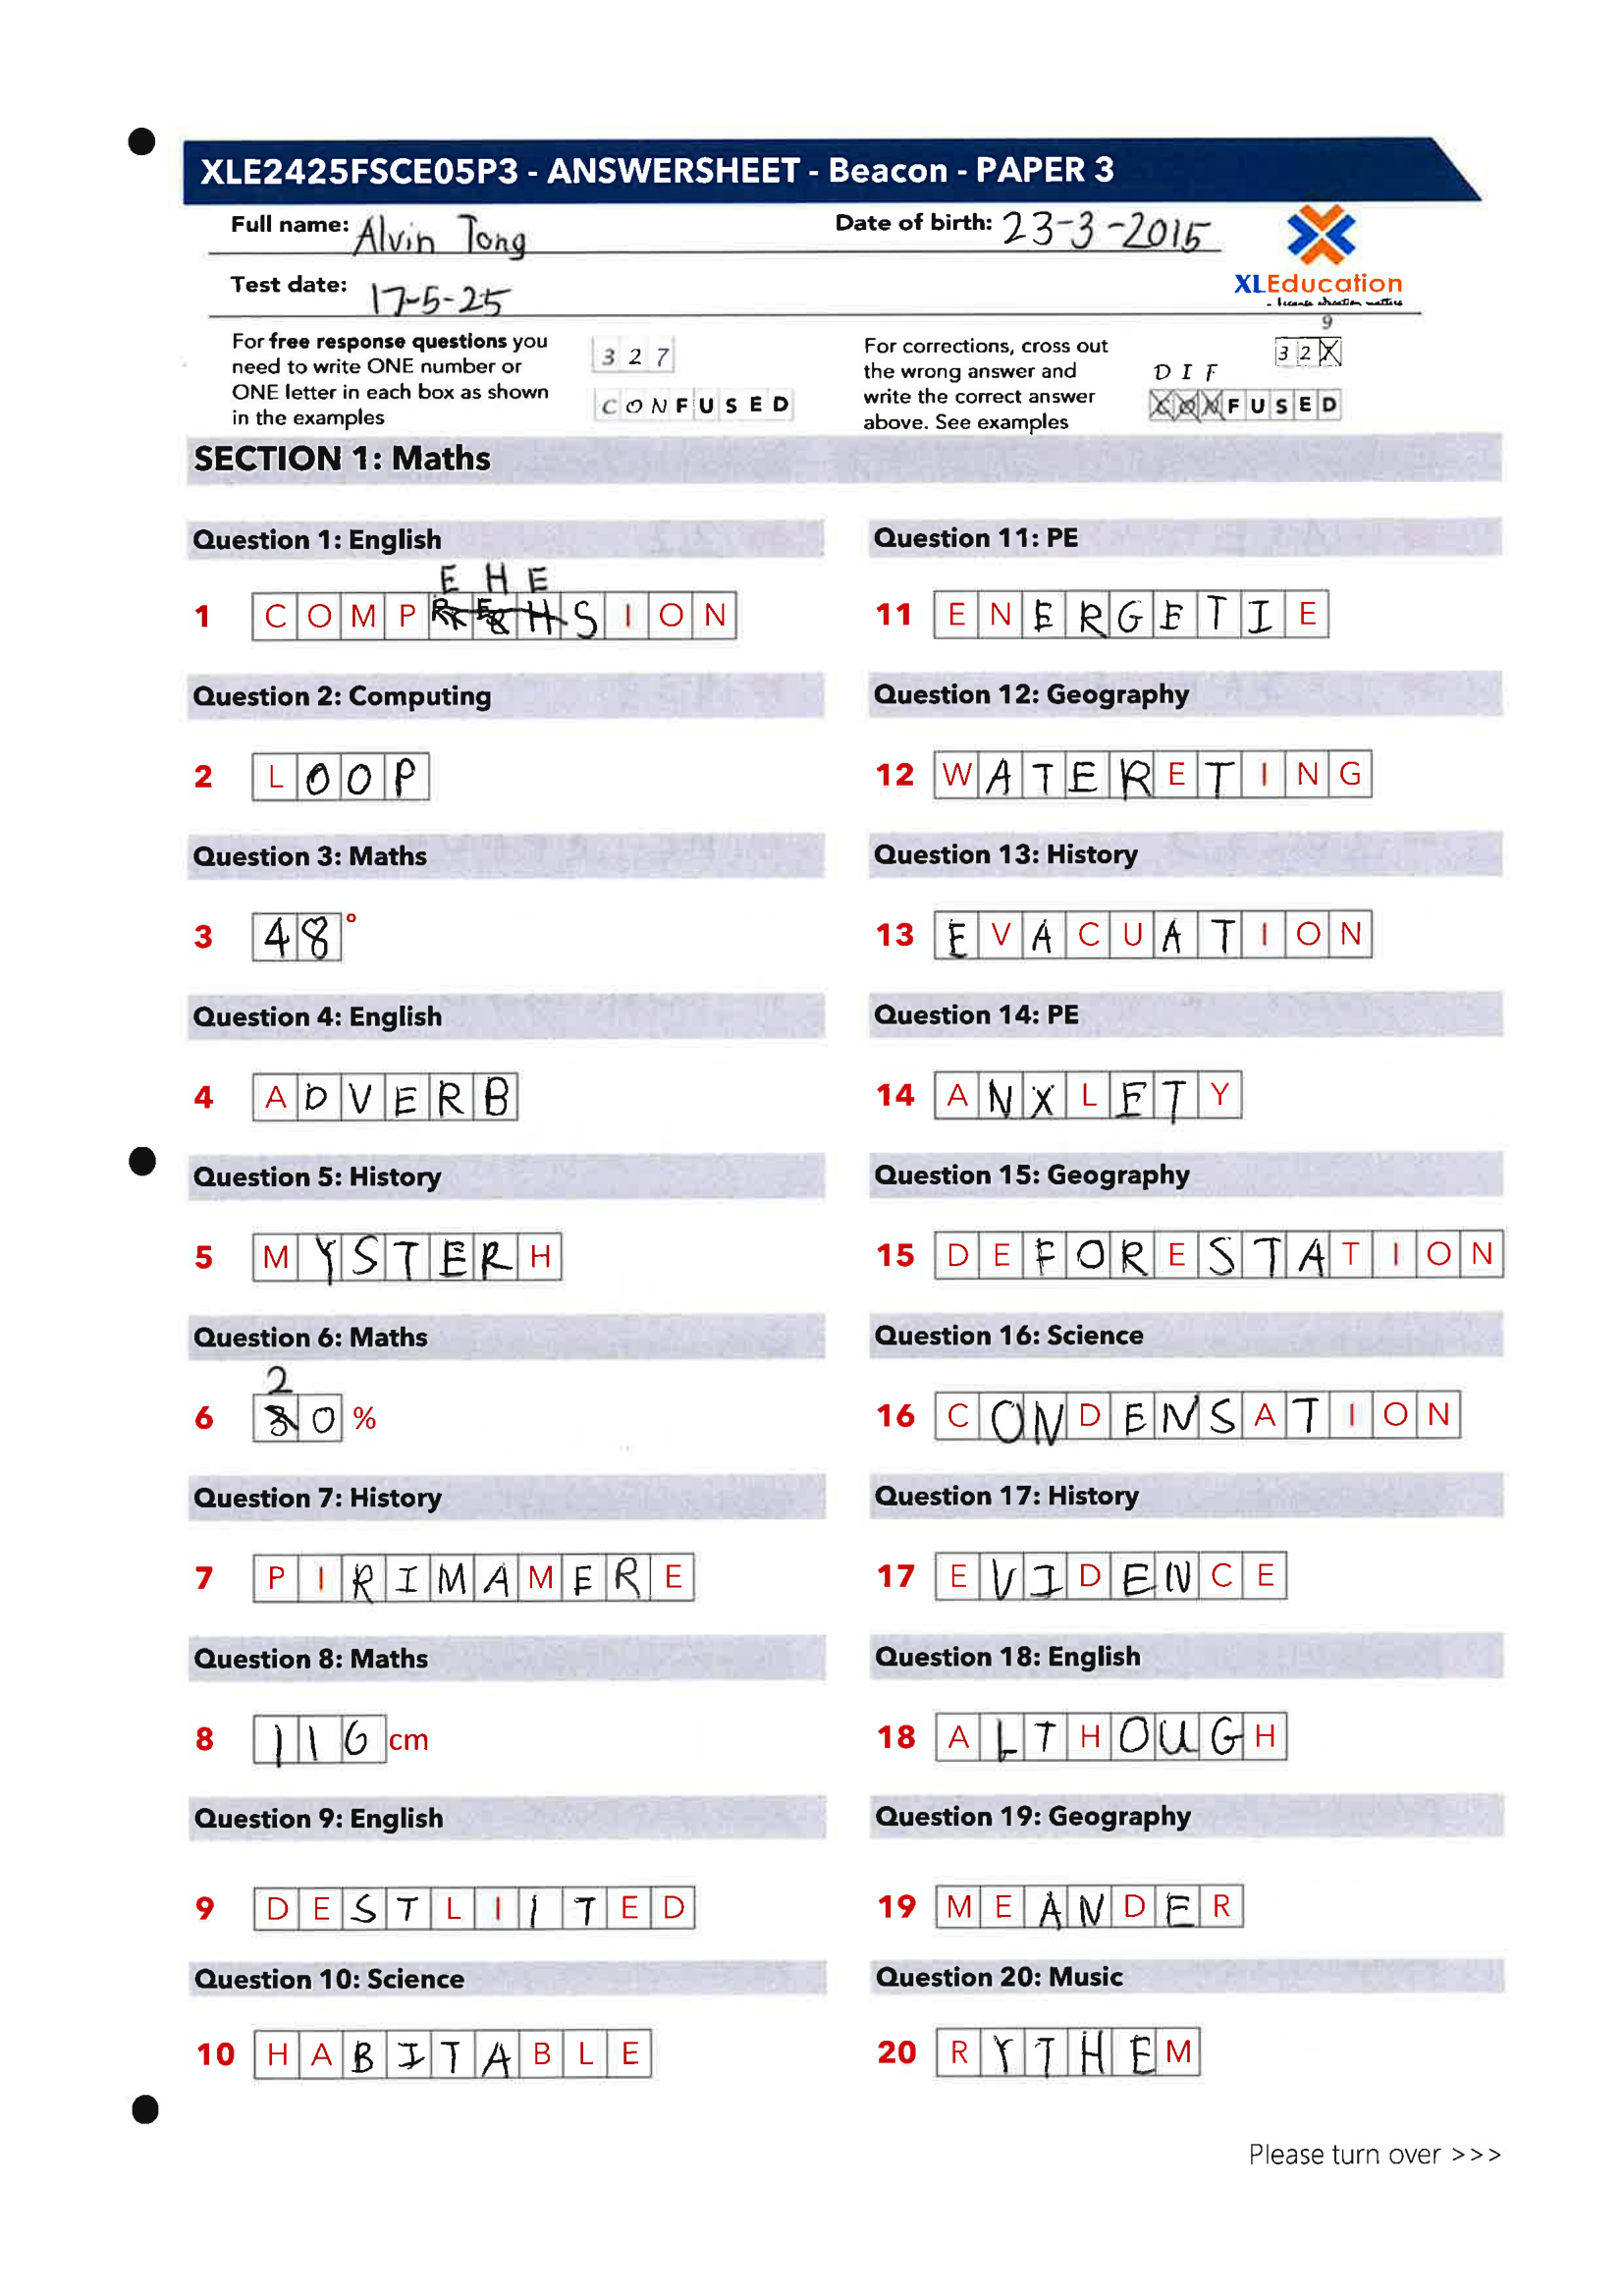 XLE2425FSCE05P3 - ANSWERSHEET - Beacon - PAPER 3
Full name: Alvin Tong
Date of birth: 23-3-2015
Test date: 17-5-25
XLEducation
- because education matters
For free response questions you
need to write ONE number or
ONE letter in each box as shown
in the examples
3 2 7
C O N F U S E D
For corrections, cross out
the wrong answer and
write the correct answer
above. See examples
9
3 2 X
D I F
C O N F U S E D
SECTION 1: Maths
Question 1: English
E H E
1 C O M P S I O N
Question 2: Computing
2 L O O P
Question 3: Maths
3 4 8 °
Question 4: English
4 A D V E R B
Question 5: History
5 M Y S T E R H
Question 6: Maths
2
6 3 0 %
Question 7: History
7 P I R I M A M E R E
Question 8: Maths
8 1 1 6 cm
Question 9: English
9 D E S T L I I T E D
Question 10: Science
10 H A B I T A B L E
Question 11: PE
11 E N E R G E T I E
Question 12: Geography
12 W A T E R E T I N G
Question 13: History
13 E V A C U A T I O N
Question 14: PE
14 A N X L E T Y
Question 15: Geography
15 D E F O R E S T A T I O N
Question 16: Science
16 C O N D E N S A T I O N
Question 17: History
17 E V I D E N C E
Question 18: English
18 A L T H O U G H
Question 19: Geography
19 M E A N D E R
Question 20: Music
20 R Y T H E M
Please turn over >>>